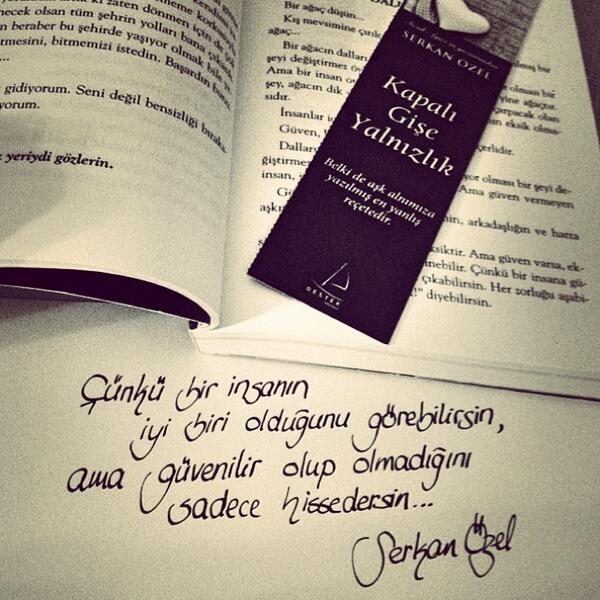 necek olsan tüm şehrin yolları bana çıkardı
n beraber bu şehirde yaşıyor olmak bile
tmesini, bitmemizi istedin. Başardın bunu
...
gidiyorum. Seni değil bensizliği bıraka
yorum.
yeriydi gözlerin.
Bir ağaç düşün...
Kış mevsimine
ağaç...
Bir ağacın dalları
şeyi değiştirmez
Ama bir insan
şey, ağacın dik
sıdır.
İnsanlar
Güven,
Dalları
ğiştirmez
insan,
aşkın
yor olması bir şeyi de-
Ama güven vermeyen
nin, arkadaşlığın ve hatta
ksiktir. Ama güven varsa, ek-
nebilir. Çünkü bir insana gü-
çıkabilirsin. Her zorluğu aşabi-
!" diyebilirsin.
SERKAN ÖZEL
Kapalı
Gişe
Yalnızlık
Belki de aşk alnımıza
yazılmış en yanlış
reçetedir.
DESTEK
Çünkü bir insanın
iyi biri olduğunu görebilirsin,
ama güvenilir olup olmadığını
sadece hissedersin...
Serkan Özel